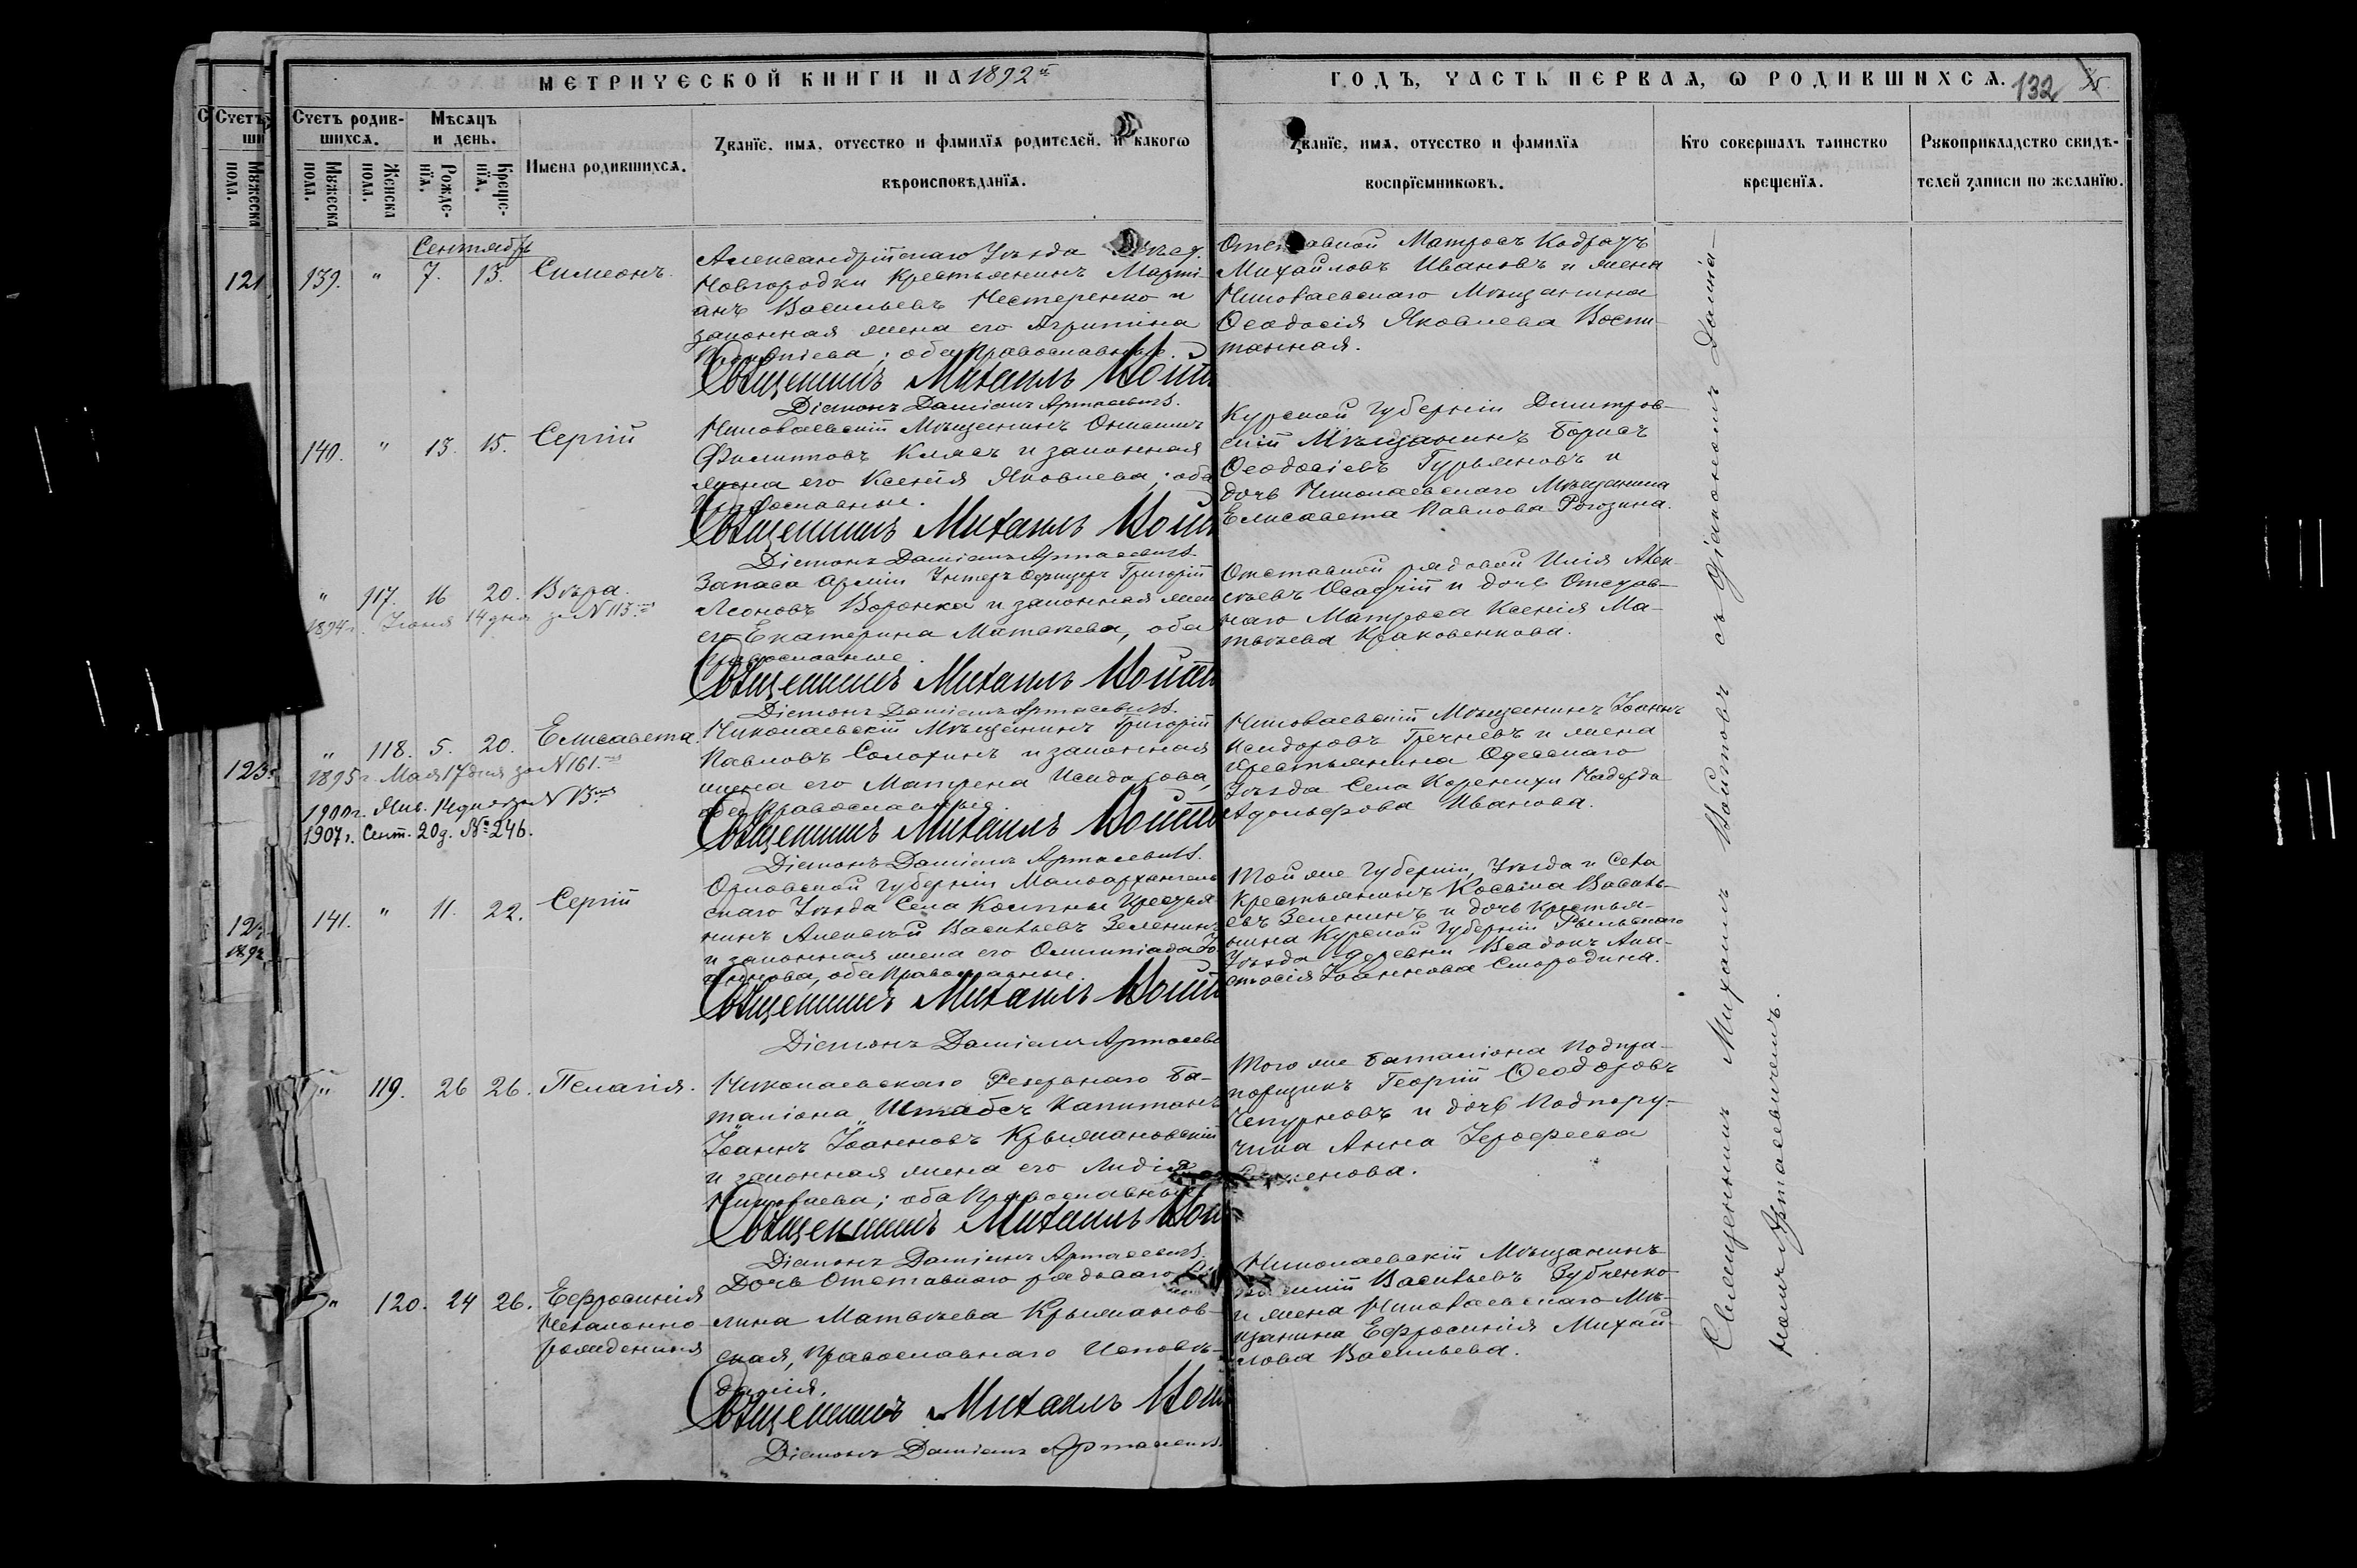 МЕТРИЧЕСКОЙ КНИГИ НА 1892й
ГОДЪ, ЧАСТЬ ПЕРВАЯ, Ѡ РОДИВШИХСЯ. 132
Счетъ родив-
шихся.
Мужеска
пола.
Женска
пола.
Мѣсяцъ
и день.
Рожде-
нїя.
Креще-
нїя.
Имена родившихся.
Званїе, имя, отчество и фамилїя родителей, и какогѡ
вѣроисповѣданїя.
Званїе, имя, отчество и фамилїя
воспрїемникѡвъ.
Кто совершалъ таинство
крещенїя.
Рукоприкладство свидѣ-
телей записи по желанїю.
Сентябрь
121.
139. " 7. 13. Симеонъ.
Александрійскаго Уѣзда
Новгородки Крестьянинъ Марті-
анъ Васильевъ Нестеренко и
законная жена его Агрипина
Прокопіева; оба Православные.
Священникъ Михаилъ Войт
Діаконъ Даміанъ Артасевичъ.
Отставной Матросъ Кодратъ
Михайловъ Ивановъ и жена
Николаевскаго Мѣщанина
Ѳеодосія Яковлева Воспи-
танная.
140. " 13. 15. Сергій
Николаевскій Мѣщанинъ Онисимъ
Филипповъ Клясъ и законная
жена его Ксенія Яковлева; оба
Православные.
Священникъ Михаилъ Войт
Діаконъ Даміанъ Артасевичъ.
Курской Губерніи Дмитров-
скій Мѣщанинъ Борисъ
Ѳеодосіевъ Гурьяновъ и
дочь Николаевскаго Мѣщанина
Елисавета Павлова Рогозина.
" 117. 16 20. Вѣра.
1894 г. Іюня 14 дня за N 113.
Запаса Арміи Унтеръ Офицеръ Григорій
Леоновъ Воронка и законная жена
его Екатерина Матвѣева, оба
православные.
Священникъ Михаилъ Войт
Діаконъ Даміанъ Артасевичъ.
Отставной рядовой Илія Алек-
сѣевъ Осадчій и дочь Отстав-
наго Матроса Ксенія Ма-
твѣева Краковенкова.
" 118. 5. 20. Елисавета.
123.
1895 г. Мая 17 дня за N 161.
1900 г. Янв. 14 дня за N 13
1907 г. Сент. 20 д. № 246.
Николаевскій Мѣщанинъ Григорій
Павловъ Солохинъ и законная
жена его Матрена Исидорова,
оба Православные.
Священникъ Михаилъ Войт
Діаконъ Даміанъ Артасевичъ.
Николаевскій Мѣщанинъ Іоаннъ
Исидоровъ Гречневъ и жена
Крестьянина Одесскаго
Уѣзда Села Коренихи Надежда
Адольфова Иванова.
141. " 11. 22. Сергій
Орловской Губерніи Малоархангель-
скаго Уѣзда Села Колпны Крестья-
нинъ Алексѣй Васильевъ Зеленинъ
и законная жена его Олимпіада Іо-
аннова, оба Православные.
Священникъ Михаилъ Войт
Діаконъ Даміанъ Артасеви
Той же Губерніи, Уѣзда и Села
Крестьянинъ Косьма Василь-
евъ Зеленинъ и дочь Крестья-
нина Курской Губерніи Рыльскаго
Уѣзда деревни Ана-
стасія Іоаннова Смородина.
" 119. 26 26. Пелагія.
Николаевскаго Резервнаго Ба-
таліона Штабсъ Капитанъ
Іоаннъ Іоанновъ Крыжановскій
и законная жена его Лидія
Николаева; оба Православные
Священникъ Михаилъ Вой
Діаконъ Даміанъ Артасевичъ.
Того же Баталіона Подпра-
порщикъ Георгій Ѳеодоровъ
Чепурновъ и дочь Подпору-
чика Анна Іерофеева
" 120. 24 26. Евфросинія
Незаконно-
рожденная
Дочь Отставнаго рядоваго
лина Матвѣева Крыжанов-
ская, Православнаго Исповѣ-
данія.
Священникъ Михаилъ Вой
Діаконъ Даміанъ Артасевичъ.
Николаевскій Мѣщанинъ
Васильевъ Зубченко
и жена Николаевскаго Мѣ-
щанина Евфросинія Михай-
лова Васильева.
Священникъ Михаилъ Войтовъ съ Діакономъ Даміа-
номъ Артасевичемъ.